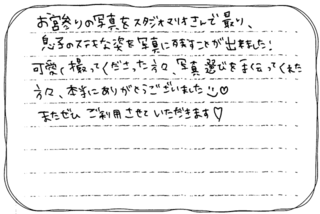 お宮参りの写真をスタジオマリオさんで撮り、
息子のステキな姿を写真に残すことが出来ました!
可愛く撮ってくださった方々、写真選びを手伝ってくれた
方々、本当にありがとうございました☺♡
またぜひ ご利用させていただきます♡